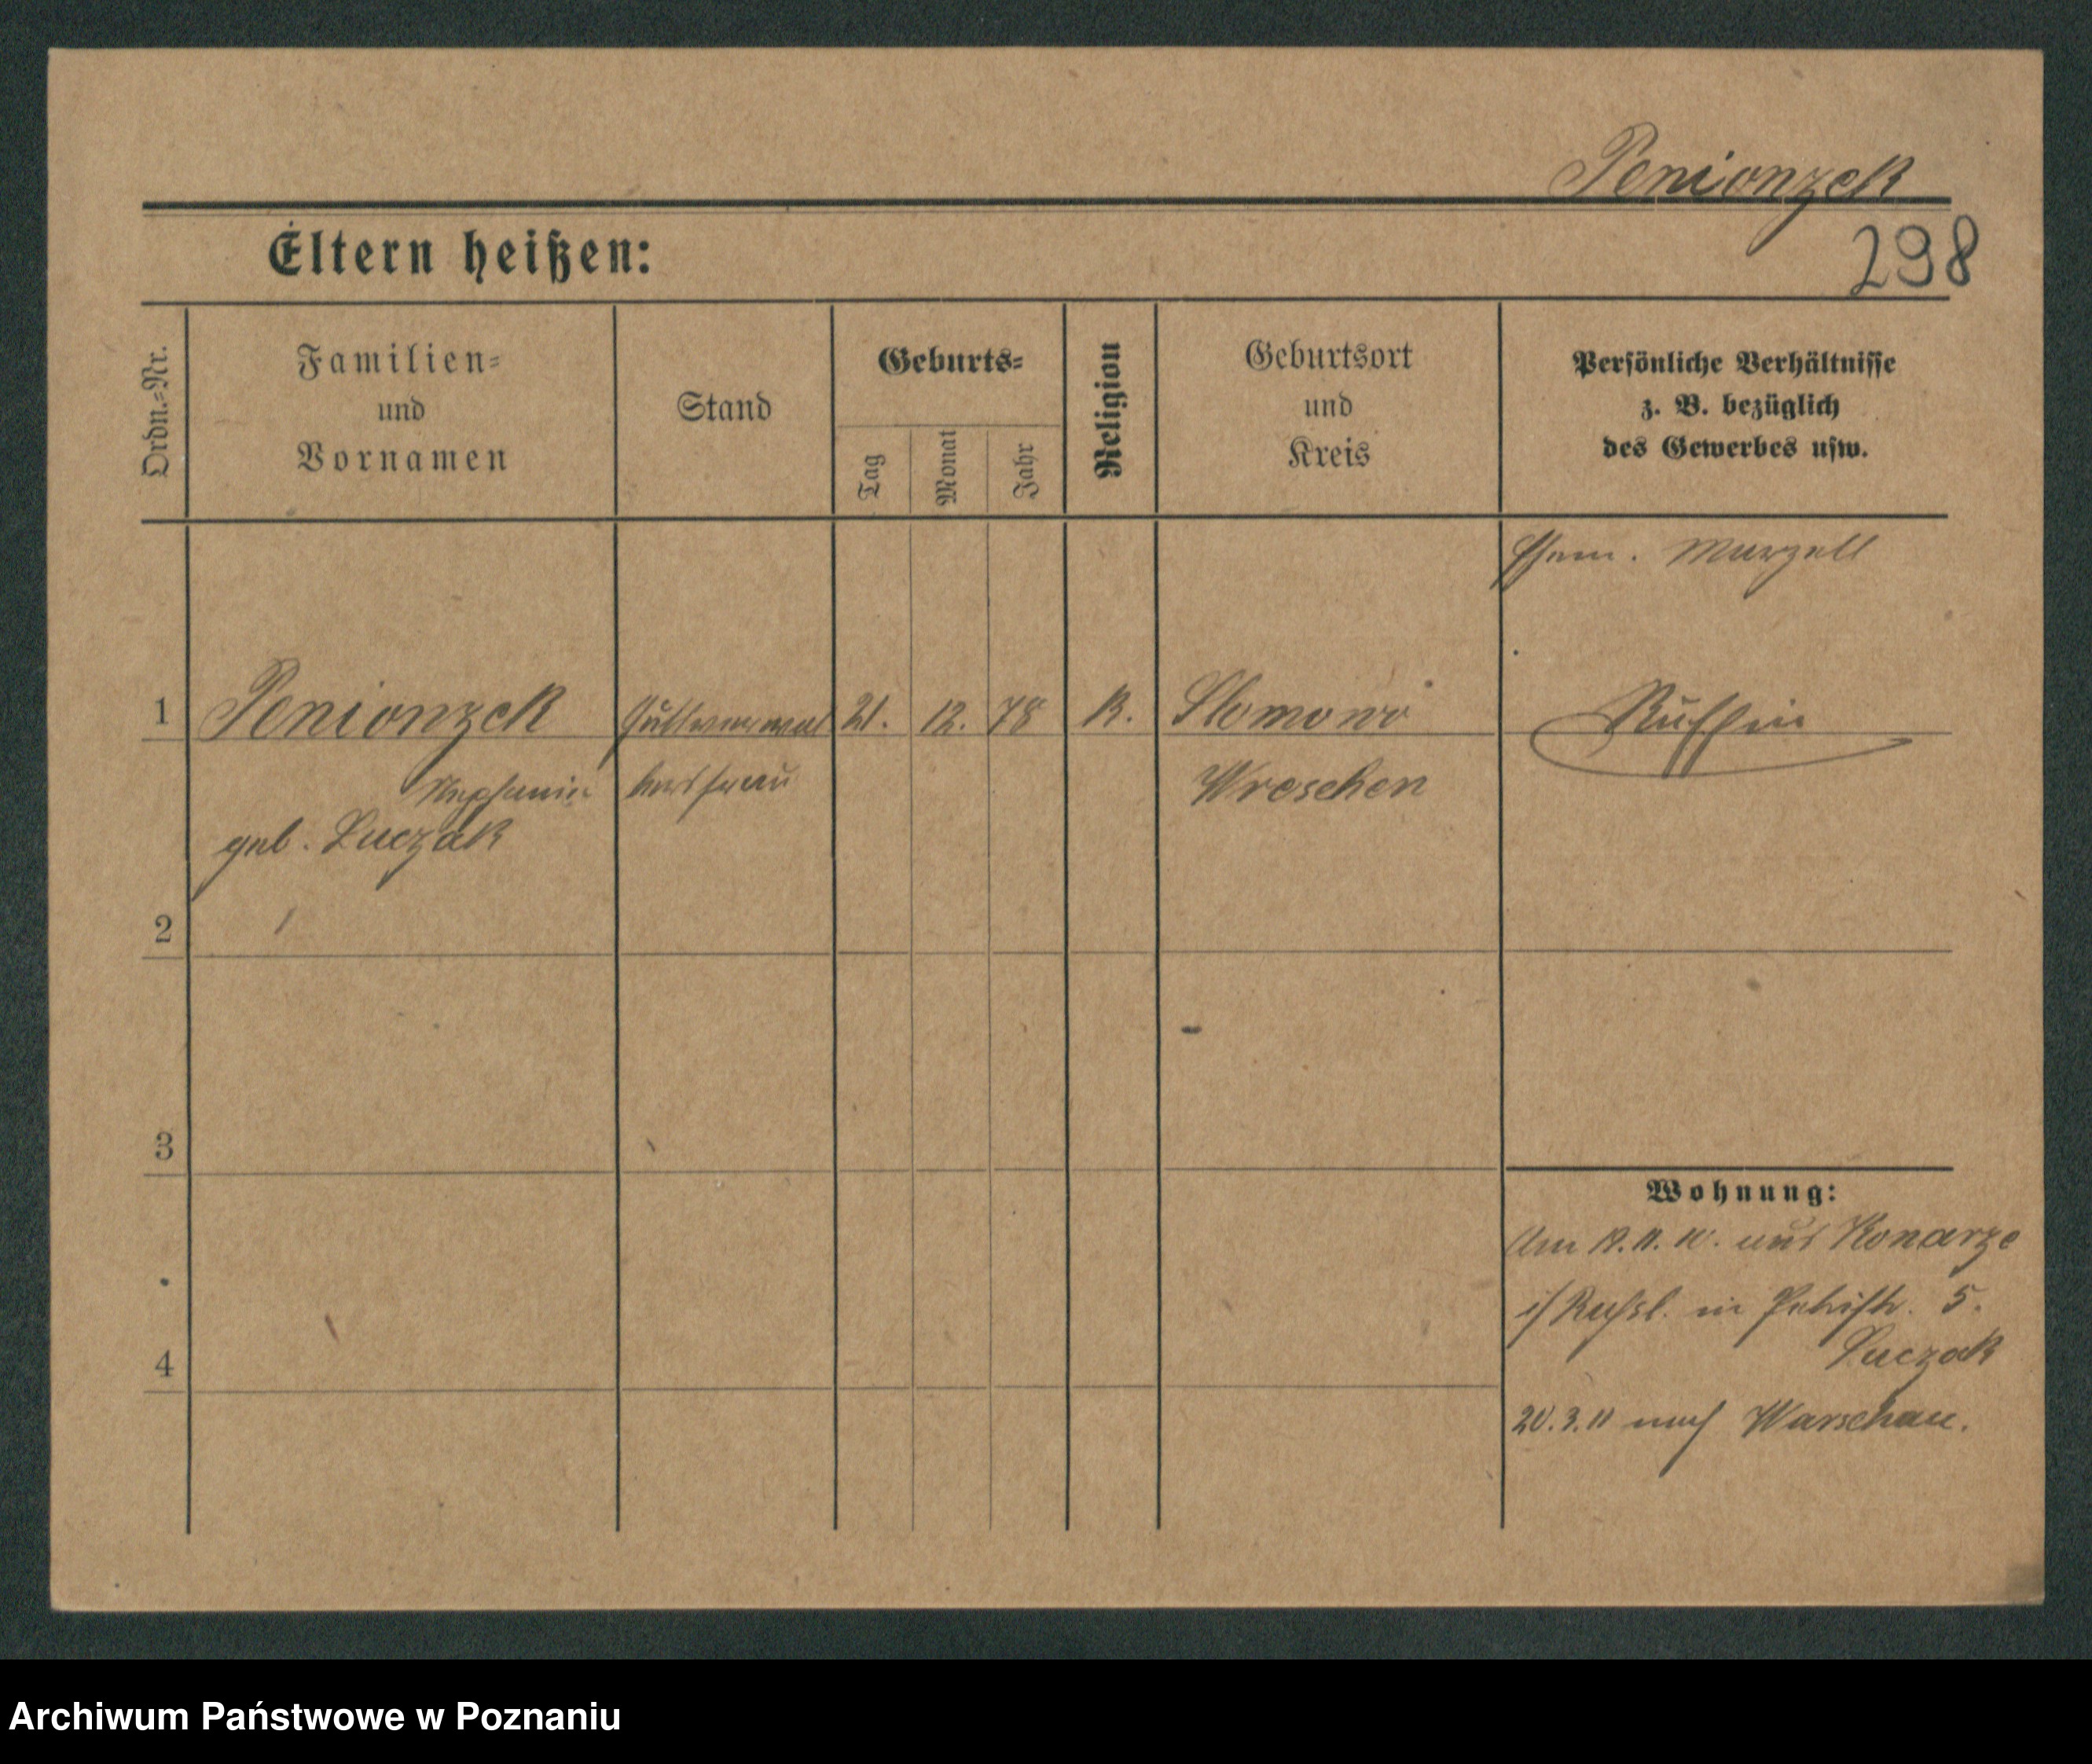 Penionzek
Eltern heißen:
298
Ordn.-Nr.
Familien-
und
Vornamen
Stand
Geburts-
Tag
Monat
Jahr
Religion
Geburtsort
und
Kreis
Persönliche Verhältnisse
z. B. bezüglich
des Gewerbes usw.
Ehem. Marzell
1 Penionzek Gutsverwal 21. 12. 78 K. Slomowo Russin
Stephanie tersfrau Wreschen
geb. Luczak
2
3
Wohnung:
Am 19. 11. 10. aus Konarze
i/ Russl. in Petristr. 5.
Luczak
4
20. 3. 11 nach Warschau.
Archiwum Państwowe w Poznaniu